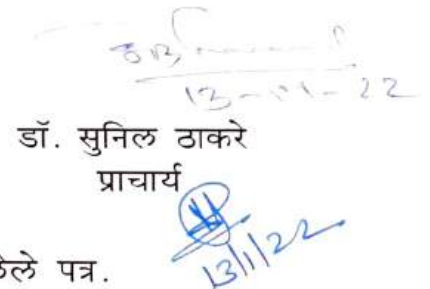 13-01-22
डॉ. सुनिल ठाकरे
प्राचार्य
13/1/22
पत्र.